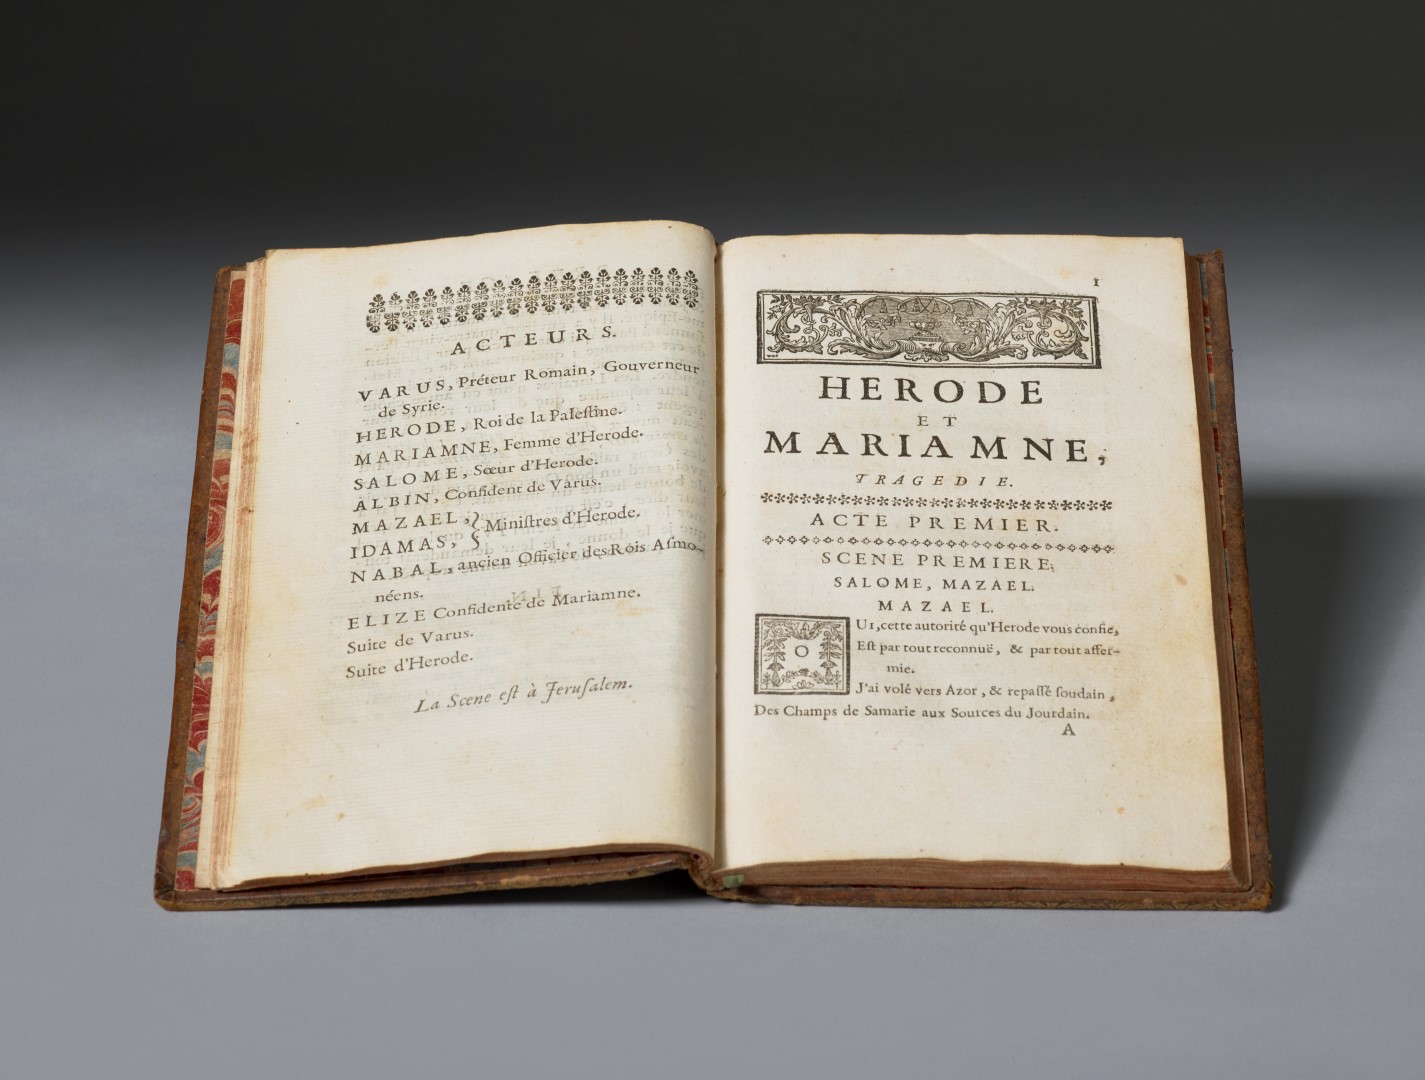 ACTEURS.
VARUS, Préteur Romain, Gouverneur
de Syrie.
HERODE, Roi de la Palestine.
MARIAMNE, Femme d'Herode.
SALOME, Sœur d'Herode.
ALBIN, Confident de Varus.
MAZAEL, } Ministres d'Herode.
IDAMAS,
NABAL, ancien Officier des Rois Asmo-
néens.
ELIZE Confidente de Mariamne.
Suite de Varus.
Suite d'Herode.
La Scene est à Jerusalem.
1
HERODE
ET
MARIAMNE,
TRAGEDIE.
ACTE PREMIER.
SCENE PREMIERE.
SALOME, MAZAEL.
MAZAEL.
OUI, cette autorité qu'Herode vous confie,
Est par tout reconnuë, & par tout affer-
mie.
J'ai volé vers Azor, & repassé soudain,
Des Champs de Samarie aux Sources du Jourdain.
A